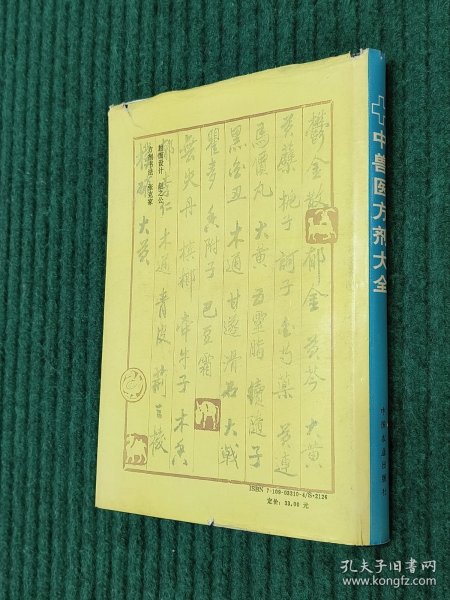 中兽医方剂大全
中国农业出版社
封面设计 赵之公
方剂书法 张克家
鬱金散 郁金 黄芩 大黄
黄蘗 栀子 诃子 金芍藥 黄連
馬價丸 大黄 五靈脂 續随子
黑金丑 木通 甘遂 滑石 大戟
瞿麥 香附子 巴豆霜
無失丹 槟榔 牵牛子 木香
木通 青皮 荆三棱
大黄
ISBN 7-109-03310-4/S·2126
定价：39.00 元
孔夫子旧书网
www.kongfz.com